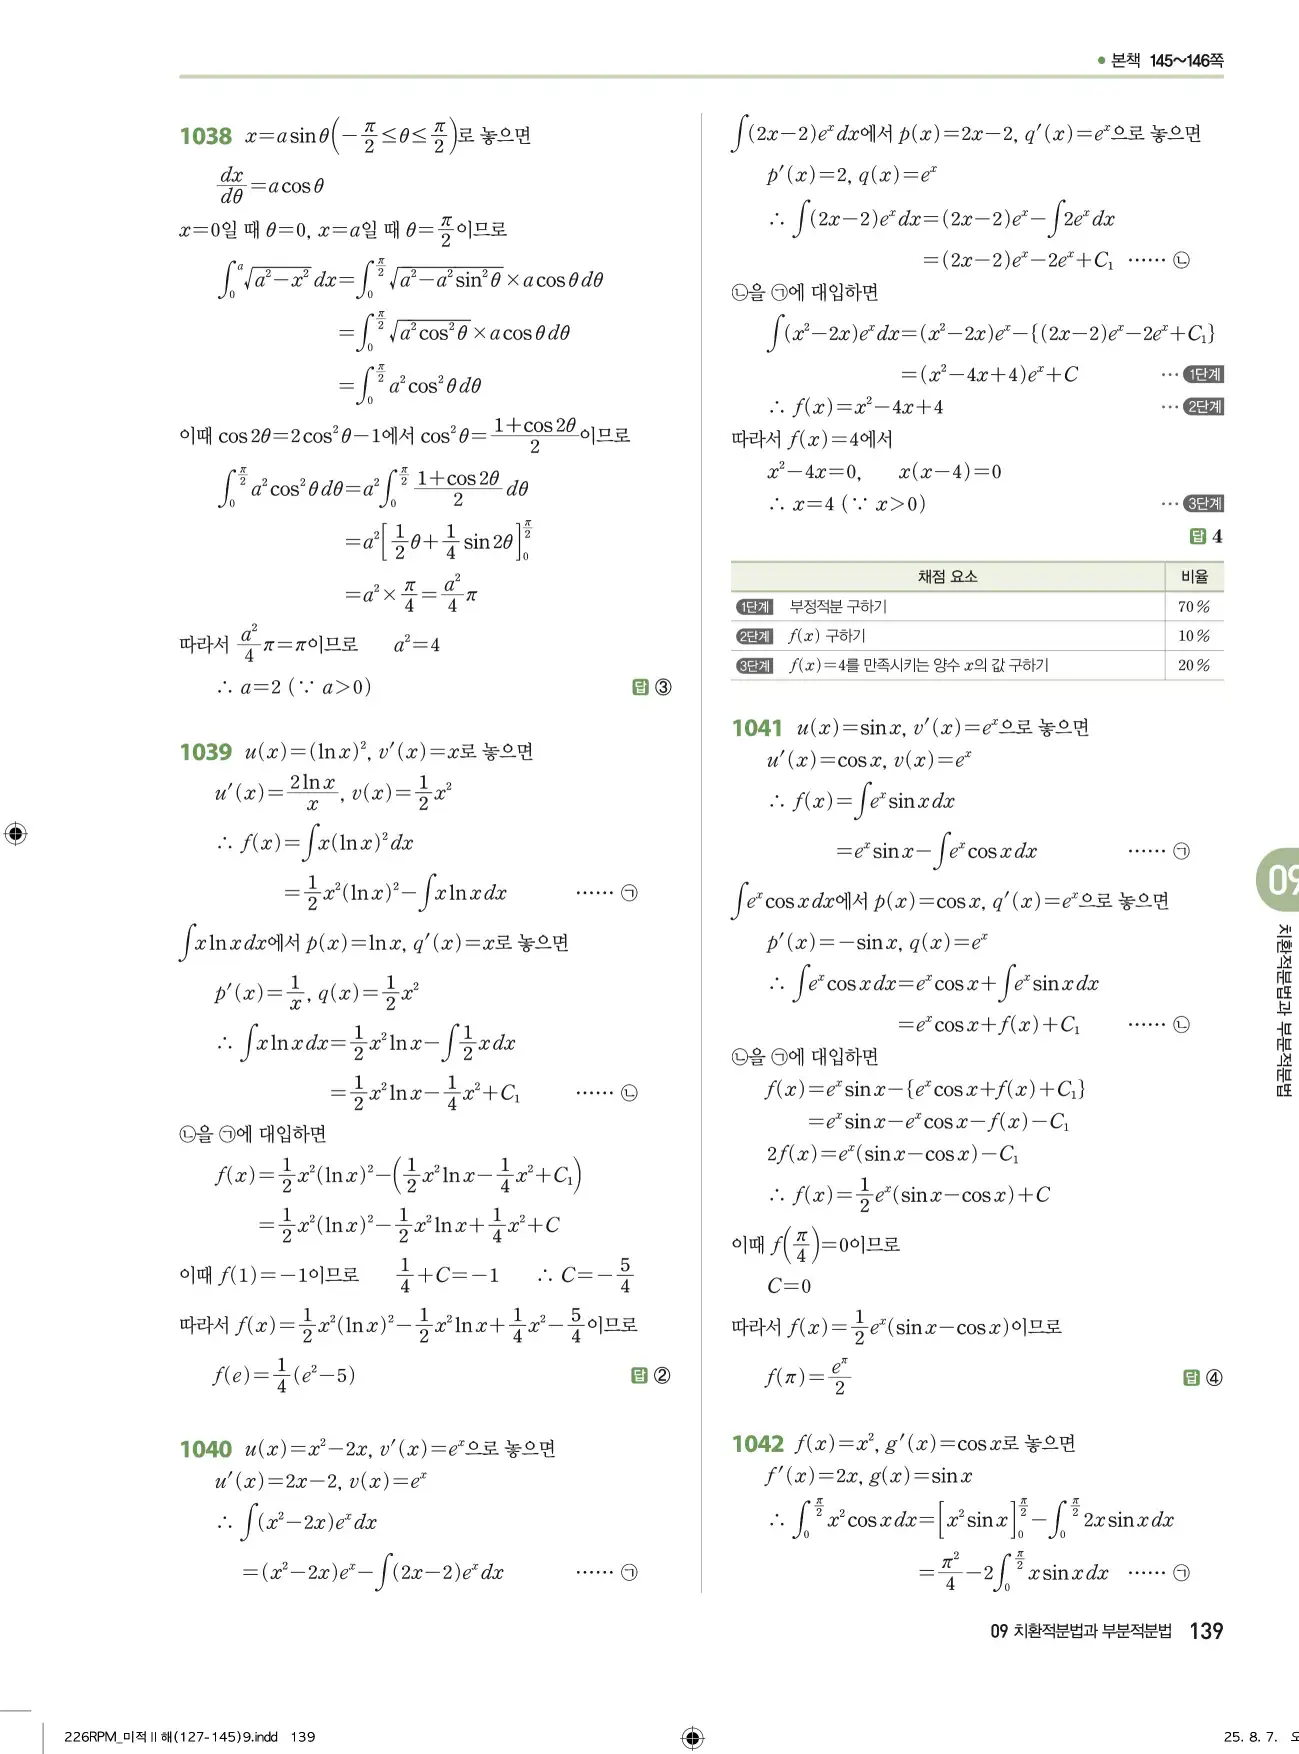 ● 본책 145~146쪽
1038 x=a sin θ(-π/2≤θ≤π/2)로 놓으면
dx/dθ=a cos θ
x=0일 때 θ=0, x=a일 때 θ=π/2이므로
∫₀ᵃ √(a²-x²) dx=∫₀^(π/2) √(a²-a² sin² θ)×a cos θ dθ
=∫₀^(π/2) √(a² cos² θ)×a cos θ dθ
=∫₀^(π/2) a² cos² θ dθ
이때 cos 2θ=2 cos² θ-1에서 cos² θ=(1+cos 2θ)/2이므로
∫₀^(π/2) a² cos² θ dθ=a²∫₀^(π/2) (1+cos 2θ)/2 dθ
=a²[1/2 θ+1/4 sin 2θ]₀^(π/2)
=a²×π/4=a²/4 π
따라서 a²/4 π=π이므로 a²=4
∴ a=2 (∵ a>0) 답 ③
1039 u(x)=(ln x)², v′(x)=x로 놓으면
u′(x)=(2 ln x)/x, v(x)=1/2 x²
∴ f(x)=∫x(ln x)² dx
=1/2 x²(ln x)²-∫x ln x dx …… ㉠
∫x ln x dx에서 p(x)=ln x, q′(x)=x로 놓으면
p′(x)=1/x, q(x)=1/2 x²
∴ ∫x ln x dx=1/2 x² ln x-∫1/2 x dx
=1/2 x² ln x-1/4 x²+C₁ …… ㉡
㉡을 ㉠에 대입하면
f(x)=1/2 x²(ln x)²-(1/2 x² ln x-1/4 x²+C₁)
=1/2 x²(ln x)²-1/2 x² ln x+1/4 x²+C
이때 f(1)=-1이므로 1/4+C=-1 ∴ C=-5/4
따라서 f(x)=1/2 x²(ln x)²-1/2 x² ln x+1/4 x²-5/4이므로
f(e)=1/4(e²-5) 답 ②
1040 u(x)=x²-2x, v′(x)=eˣ으로 놓으면
u′(x)=2x-2, v(x)=eˣ
∴ ∫(x²-2x)eˣ dx
=(x²-2x)eˣ-∫(2x-2)eˣ dx …… ㉠
∫(2x-2)eˣ dx에서 p(x)=2x-2, q′(x)=eˣ으로 놓으면
p′(x)=2, q(x)=eˣ
∴ ∫(2x-2)eˣ dx=(2x-2)eˣ-∫2eˣ dx
=(2x-2)eˣ-2eˣ+C₁ …… ㉡
㉡을 ㉠에 대입하면
∫(x²-2x)eˣ dx=(x²-2x)eˣ-{(2x-2)eˣ-2eˣ+C₁}
=(x²-4x+4)eˣ+C … 1단계
∴ f(x)=x²-4x+4 … 2단계
따라서 f(x)=4에서
x²-4x=0, x(x-4)=0
∴ x=4 (∵ x>0) … 3단계
답 4
채점 요소 비율
1단계 부정적분 구하기 70%
2단계 f(x) 구하기 10%
3단계 f(x)=4를 만족시키는 양수 x의 값 구하기 20%
1041 u(x)=sin x, v′(x)=eˣ으로 놓으면
u′(x)=cos x, v(x)=eˣ
∴ f(x)=∫eˣ sin x dx
=eˣ sin x-∫eˣ cos x dx …… ㉠
∫eˣ cos x dx에서 p(x)=cos x, q′(x)=eˣ으로 놓으면
p′(x)=-sin x, q(x)=eˣ
∴ ∫eˣ cos x dx=eˣ cos x+∫eˣ sin x dx
=eˣ cos x+f(x)+C₁ …… ㉡
㉡을 ㉠에 대입하면
f(x)=eˣ sin x-{eˣ cos x+f(x)+C₁}
=eˣ sin x-eˣ cos x-f(x)-C₁
2f(x)=eˣ(sin x-cos x)-C₁
∴ f(x)=1/2 eˣ(sin x-cos x)+C
이때 f(π/4)=0이므로
C=0
따라서 f(x)=1/2 eˣ(sin x-cos x)이므로
f(π)=e^π/2 답 ④
1042 f(x)=x², g′(x)=cos x로 놓으면
f′(x)=2x, g(x)=sin x
∴ ∫₀^(π/2) x² cos x dx=[x² sin x]₀^(π/2)-∫₀^(π/2) 2x sin x dx
=π²/4-2∫₀^(π/2) x sin x dx …… ㉠
09
치환적분법과 부분적분법
09 치환적분법과 부분적분법 139
226RPM_미적Ⅱ해(127-145)9.indd 139
25. 8. 7.